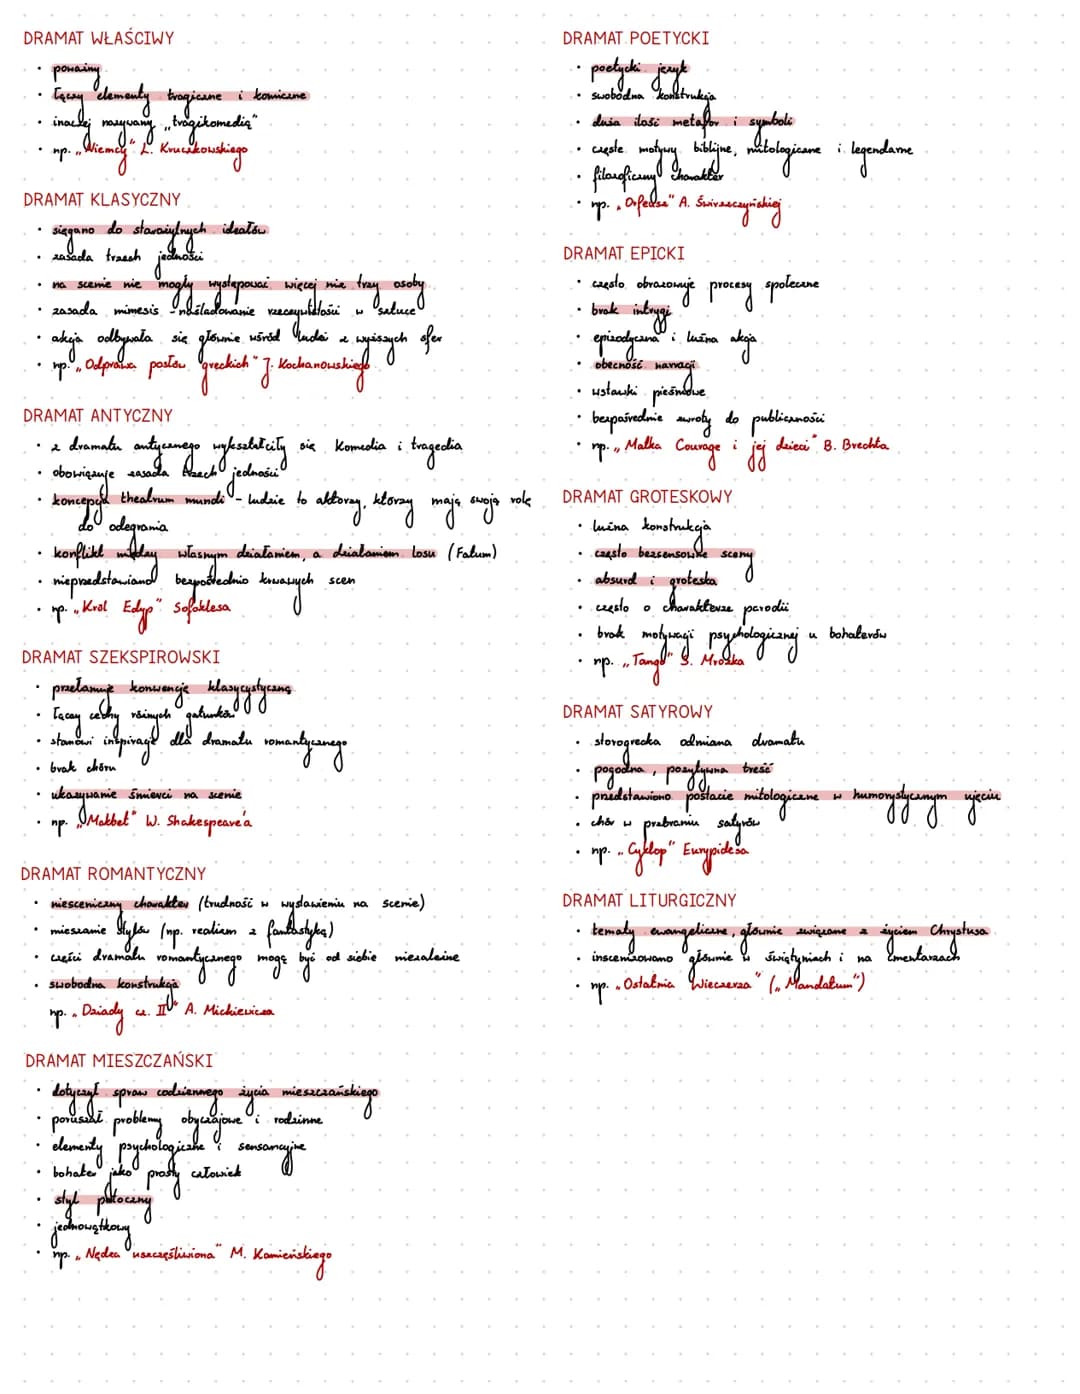 DRAMAT WŁAŚCIWY
• poważny
• łączy elementy tragiczne i komiczne
• inaczej nazywany „tragikomedią"
• np. „Niemcy" L. Kruczkowskiego
DRAMAT KLASYCZNY
• sięgano do starożytnych ideałów
• zasada trzech jedności
• na scenie nie mogły występować więcej niż trzy osoby
• zasada mimesis - naśladowanie rzeczywistości w sztuce
• akcja odbywała się głównie wśród ludzi z wyższych sfer
• np. „Odprawa posłów greckich" J. Kochanowskiego
DRAMAT ANTYCZNY
• z dramatu antycznego wykształciły się komedia i tragedia
• obowiązuje zasada trzech jedności
• koncepcja theatrum mundi - ludzie to aktorzy, którzy mają swoją rolę
do odegrania
• konflikt między własnym działaniem, a działaniem losu (Fatum)
• nieprzedstawiano bezpośrednio krwawych scen
• np. „Król Edyp" Sofoklesa
DRAMAT SZEKSPIROWSKI
• przełamuje konwencję klasycystyczną
• łączy cechy różnych gatunków
• stanowi inspirację dla dramatu romantycznego
• brak chóru
• ukazywanie śmierci na scenie
• np. „Makbet" W. Shakespeare'a
DRAMAT ROMANTYCZNY
• niesceniczny charakter (trudność w wystawieniu na scenie)
• mieszanie stylów (np. realizm z fantastyką)
• części dramatu romantycznego mogą być od siebie niezależne
• swobodna konstrukcja
np. „Dziady cz. II" A. Mickiewicza
DRAMAT MIESZCZAŃSKI
• dotyczył spraw codziennego życia mieszczańskiego
• poruszał problemy obyczajowe i rodzinne
• elementy psychologiczne i sensacyjne
• bohater jako prosty człowiek
• styl potoczny
• jednowątkowy
• np. „Nędza uszczęśliwiona" M. Kamieńskiego
DRAMAT POETYCKI
• poetycki język
• swobodna konstrukcja
• duża ilość metafor i symboli
• częste motywy biblijne, mitologiczne i legendarne
• filozoficzny charakter
• np. „Orfeusz" A. Świrszczyńskiej
DRAMAT EPICKI
• często obrazowuje procesy społeczne
• brak intrygi
• epizodyczna i luźna akcja
• obecność narracji
• wstawki pieśniowe
• bezpośrednie zwroty do publiczności
• np. „Matka Courage i jej dzieci" B. Brechta
DRAMAT GROTESKOWY
• luźna konstrukcja
• często bezsensowne sceny
• absurd i groteska
• często o charakterze parodii
• brak motywacji psychologicznej u bohaterów
• np. „Tango" S. Mrożka
DRAMAT SATYROWY
• starogrecka odmiana dramatu
• pogodna, pozytywna treść
• przedstawiono postacie mitologiczne w humorystycznym ujęciu
• chór w przebraniu satyrów
• np. „Cyklop" Eurypidesa
DRAMAT LITURGICZNY
• tematy ewangeliczne, głównie związane z życiem Chrystusa
• inscenizowano głównie w świątyniach i na cmentarzach
• np. „Ostatnia Wieczerza" („Mandatum")